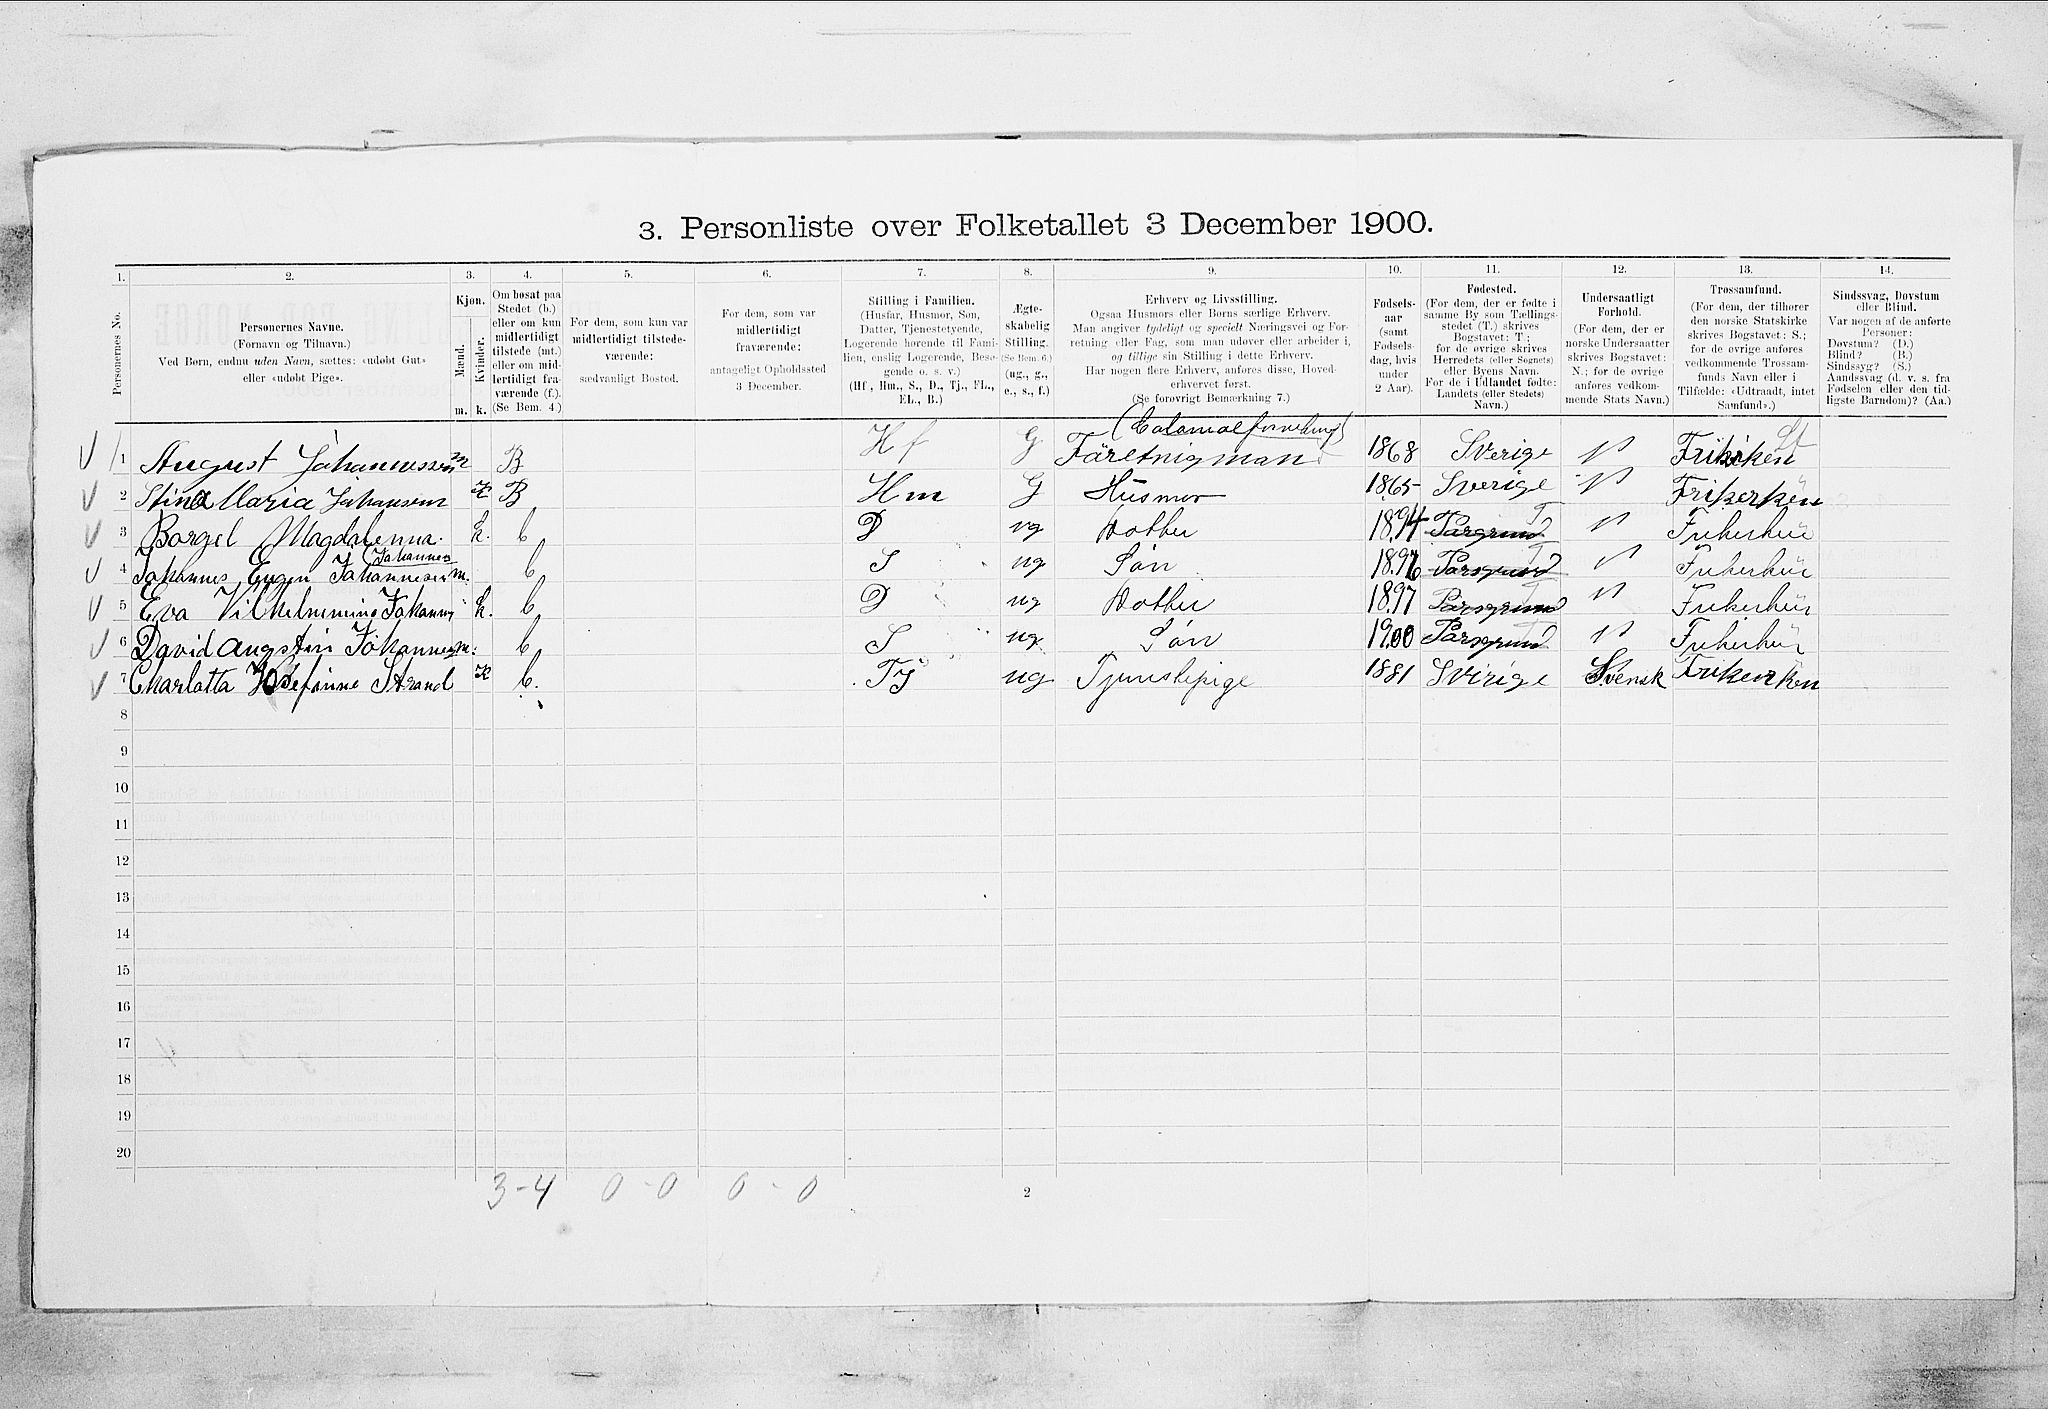 3. Personliste over Folketallet 3 December 1900.
1. 2. 3. 4. 5. 6. 7. 8. 9. 10. 11. 12. 13. 14.
Personernes No.
Personernes Navne.
(Fornavn og Tilnavn.)
Ved Børn, endnu uden Navn, sættes: «udøbt Gut»
eller «udøbt Pige».
Kjøn.
Mænd.
Kvinder.
m. k.
Om bosat paa
Stedet (b.)
eller om kun
midlertidigt
tilstede (mt.)
eller om mid-
lertidigt fra-
værende (f.).
(Se Bem. 4.)
For dem, som kun var
midlertidigt tilstede-
værende:
sædvanligt Bosted.
For dem, som var
midlertidigt
fraværende:
antageligt Opholdssted
3 December.
Stilling i Familien.
(Husfar, Husmor, Søn,
Datter, Tjenestetyende,
Logerende hørende til Fami-
lien, enslig Logerende, Besø-
gende o. s. v.)
(Hf, Hm., S., D., Tj., FL.,
EL., B.)
Ægte-
skabelig
Stilling.
(Se Bem. 6.)
(ug., g.,
e., s., f.)
Erhverv og Livsstilling.
Ogsaa Husmors eller Børns særlige Erhverv.
Man angiver tydeligt og specielt Næringsvei og For-
retning eller Fag, som man udøver eller arbeider i,
og tillige sin Stilling i dette Erhverv.
Har nogen flere Erhverv, anføres disse, Hoved-
erhvervet først.
(Se forøvrigt Bemærkning 7.)
Fødsels-
aar
(samt
Fødsels-
dag, hvis
under
2 Aar).
Fødested.
(For dem, der er fødte i
samme By som Tællings-
stedet (T.) skrives
Bogstavet: T.;
for de øvrige skrives
Herredets (eller Sognets)
eller Byens Navn.
For de i Udlandet fødte:
Landets (eller Stedets)
Navn.)
Undersaatligt
Forhold.
(For dem, der er
norske Undersaatter
skrives Bogstavet:
N.; for de øvrige
anføres vedkom-
mende Stats Navn.)
Trossamfund.
(For dem, der tilhører
den norske Statskirke
skrives Bogstavet: S.;
for de øvrige anføres
vedkommende Trossam-
funds Navn eller i
Tilfælde: «Udtraadt, intet
Samfund».)
Sindssvag, Døvstum
eller Blind.
Var nogen af de anførte
Personer:
Døvstum? (D.)
Blind? (B.)
Sindssyg? (S.)
Aandssvag (d. v. s. fra
Fødselen eller den tid-
ligste Barndom)? (Aa.)
1 August Johannessen m B Hf G Färetnigman 1868 Sverige N Frikirken
2 Stina Maria Johansem K B Hm G Husmor 1865 Sverige N Frikerken
3 Borgel Magdalenna. k. b D ug Dotter 1894 Porsgrund T N Frikerkür
Johannes
4 Johannes Eugen Johannesen m. b S ug Søn 1896 Porsgrund T N Frikerkür
5 Eva Vilhelmmine Johann k. b D ug Dotter 1897 Porsgrund T N Frikerkür
6 David Augstin Johannes m. b S ug Søn 1900 Porsgrund N Frikerkür
7 Charlotta Josefinne Strand K b. Tj ug Tjenstepige 1881 Sverige Svensk Frikerken
8
9
10
11
12
13
14
15
16
17
18
19
20
3-4 0-0 0-0
2